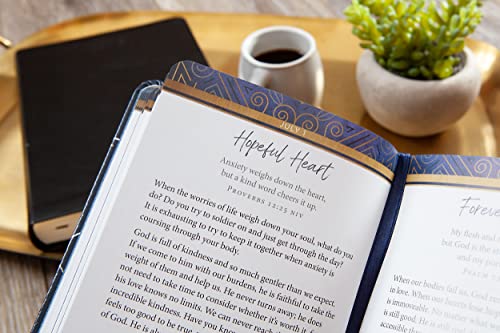 JULY 1
Hopeful Heart
Anxiety weighs down the heart,
but a kind word cheers it up.
PROVERBS 12:25 NIV
When the worries of life weigh down your soul, what do you
do? Do you try to soldier on and just get through the day?
It is exhausting to try to keep it together when anxiety is
coursing through your body.
God is full of kindness and so much gentler than we expect.
If we come to him with our burdens, he is faithful to take the
weight of them and help us. He never turns away; he does
not need to take time to consider whether it's worth it
his love knows no limits. We can never reach
incredible kindness. Have you know
feels too good to be true,
of God. He is
Forev
My flesh and
but God is the
and my po
PSALM
When our bodies fail
in love. When our hearts
is immovable. No matter
is still good; he is still
is still powerful